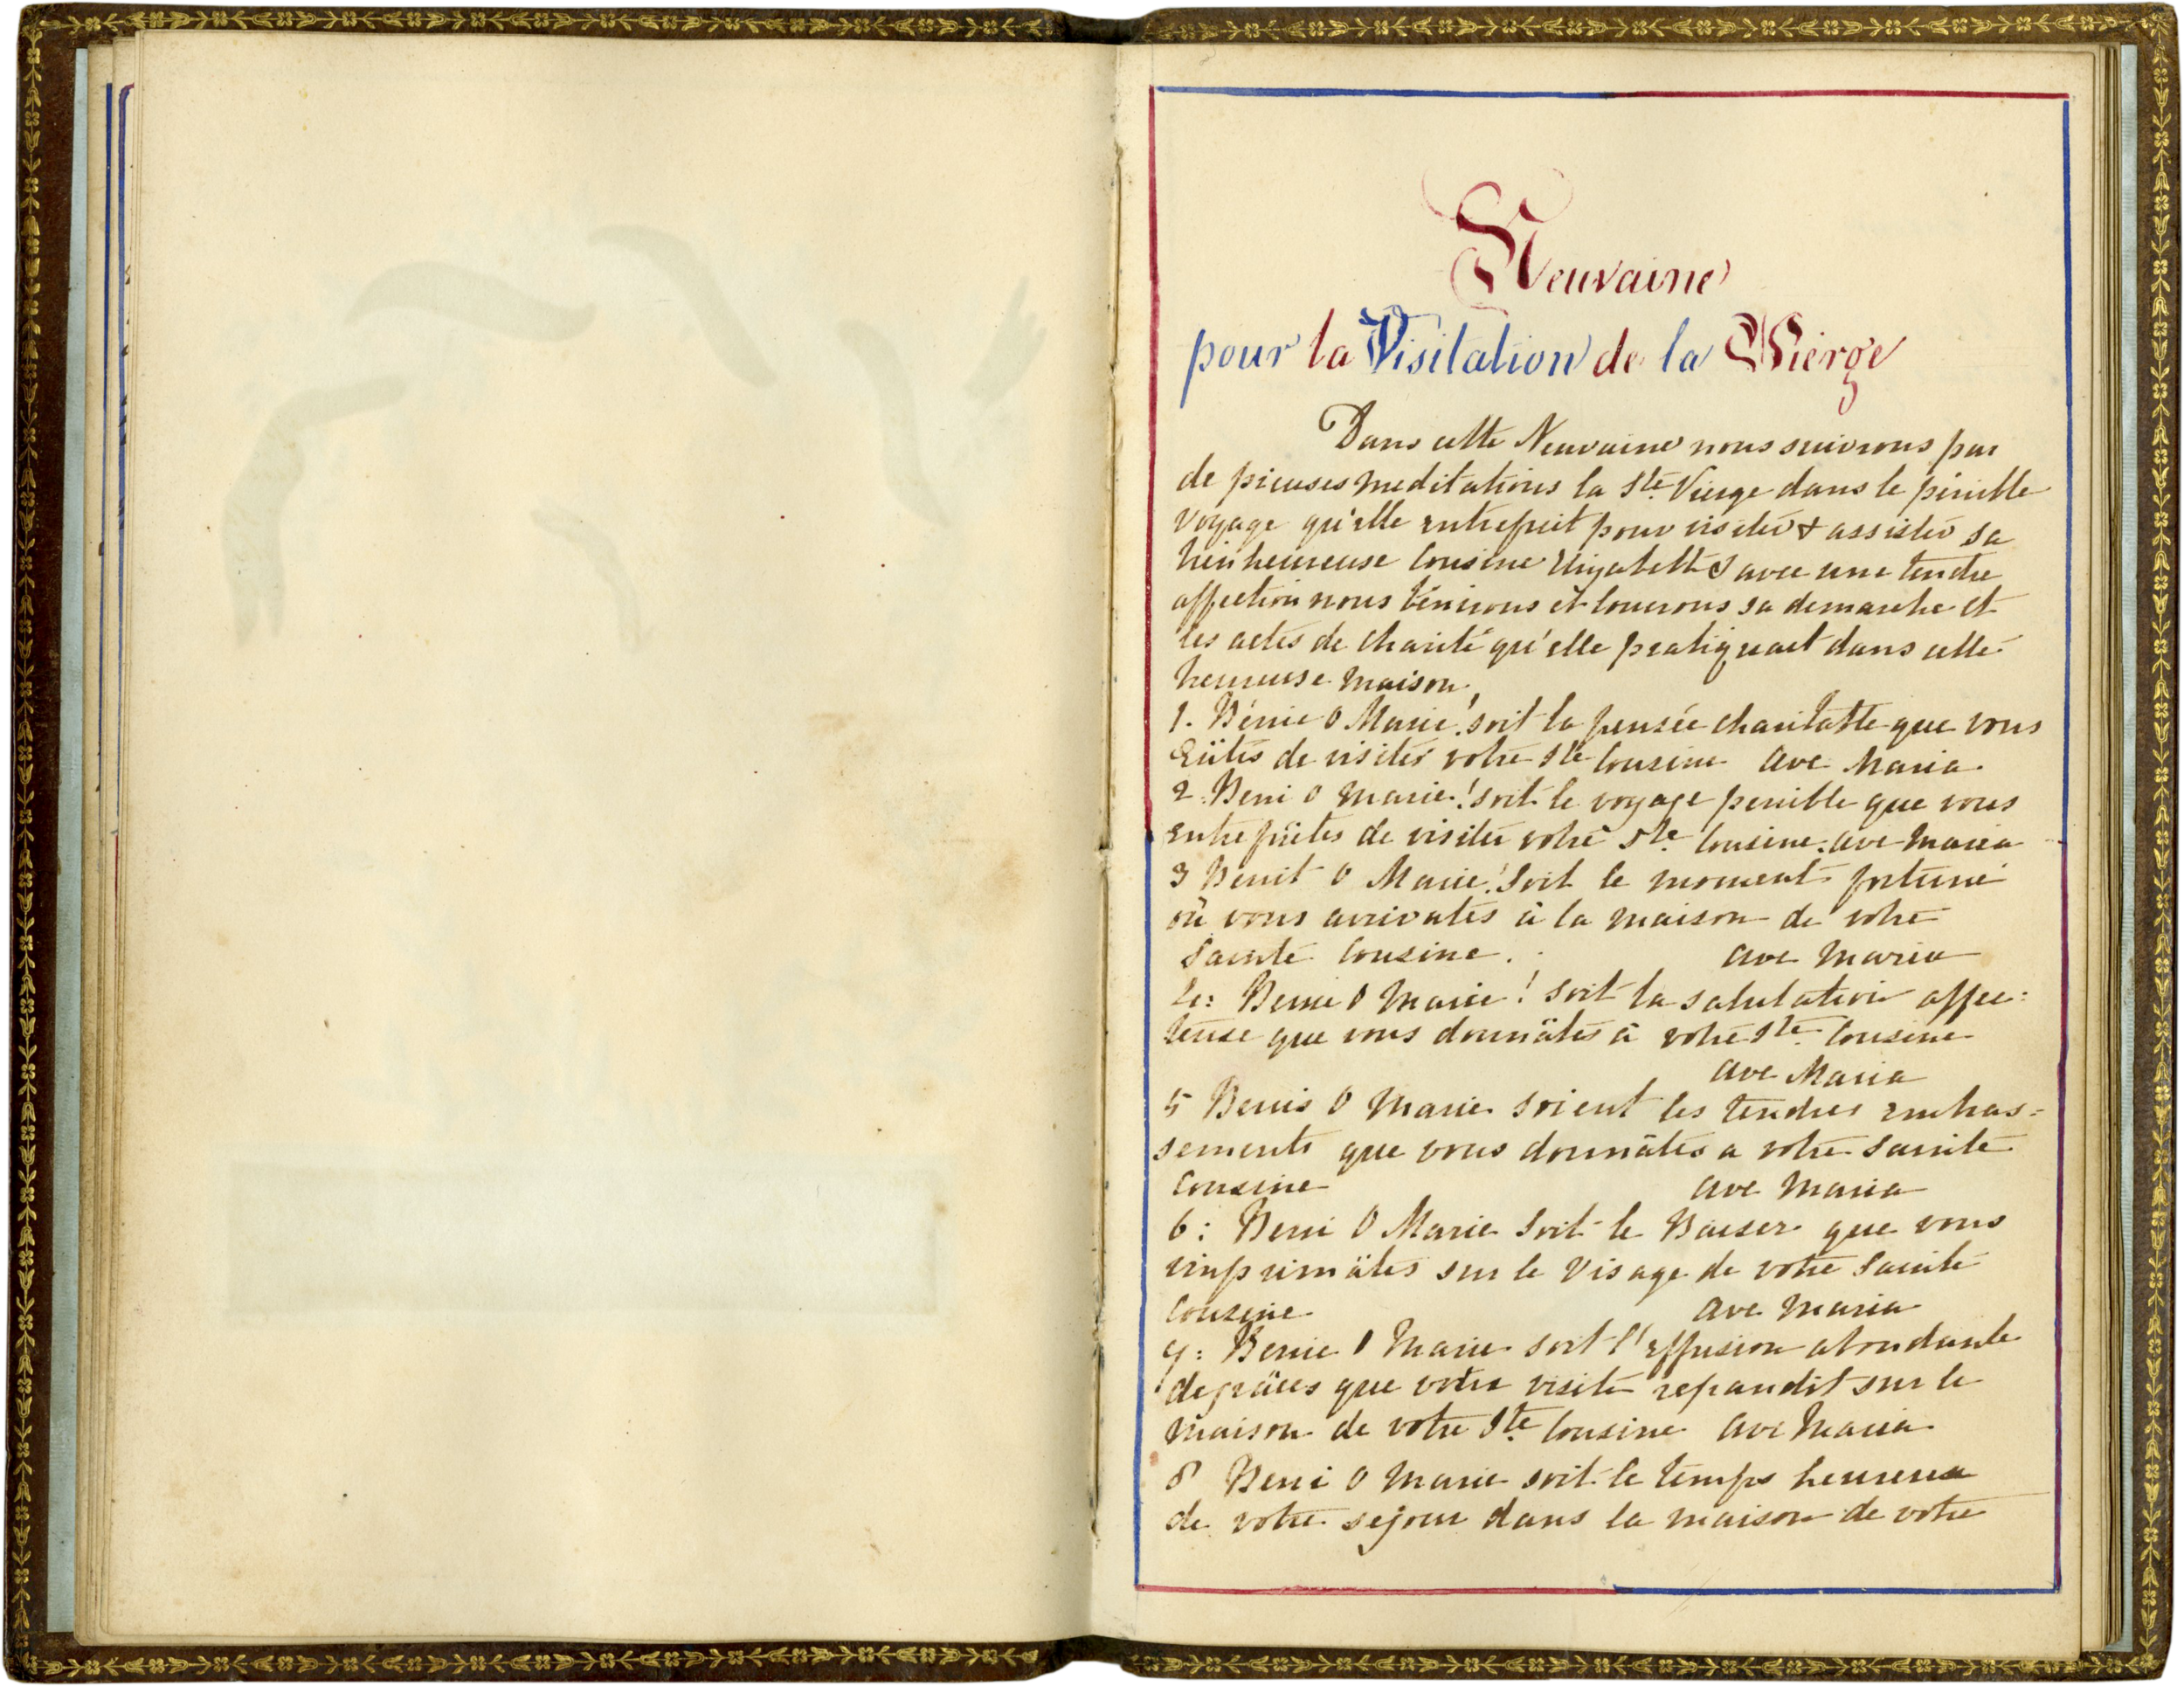 Neuvaine
pour la Visitation de la Vierge
Dans cette Neuvaine nous suivrons par
de pieuses meditations la Ste Vierge dans le pénible
voyage qu'elle entreprit pour visiter & assister sa
bienheureuse Cousine avec une tendre
affection nous bénirons et louerons sa demarche et
les actes de charité qu'elle pratiquait dans cette
heureuse maison.
1. Bénie O Marie! soit la pensée charitable que vous
eûtes de visiter votre Ste Cousine Ave Maria
2. Beni O Marie! soit le voyage penible que vous
entreprîtes de visiter votre Ste Cousine. Ave Maria
3 Benit O Marie! Soit le moment fortuné
où vous arrivates à la maison de votre
Sainte Cousine. Ave Maria
4: Benie O Marie! Soit la salutation affec=
teuse que vous donnâtes à votre Ste Cousine
Ave Maria
5 Benis O Marie soient les tendres embras=
sements que vous donnâtes a votre Sainte
Cousine Ave Maria
6: Beni O Marie Soit le Baiser que vous
imprimâtes sur le Visage de votre Sainte
Cousine Ave Maria
7: Benie O Marie soit l'effusion abondante
de grâces que votre visite repandit sur le
maison de votre Ste Cousine Ave Maria
8 Beni O Marie soit le temps heureux
de votre sejour dans la maison de votre